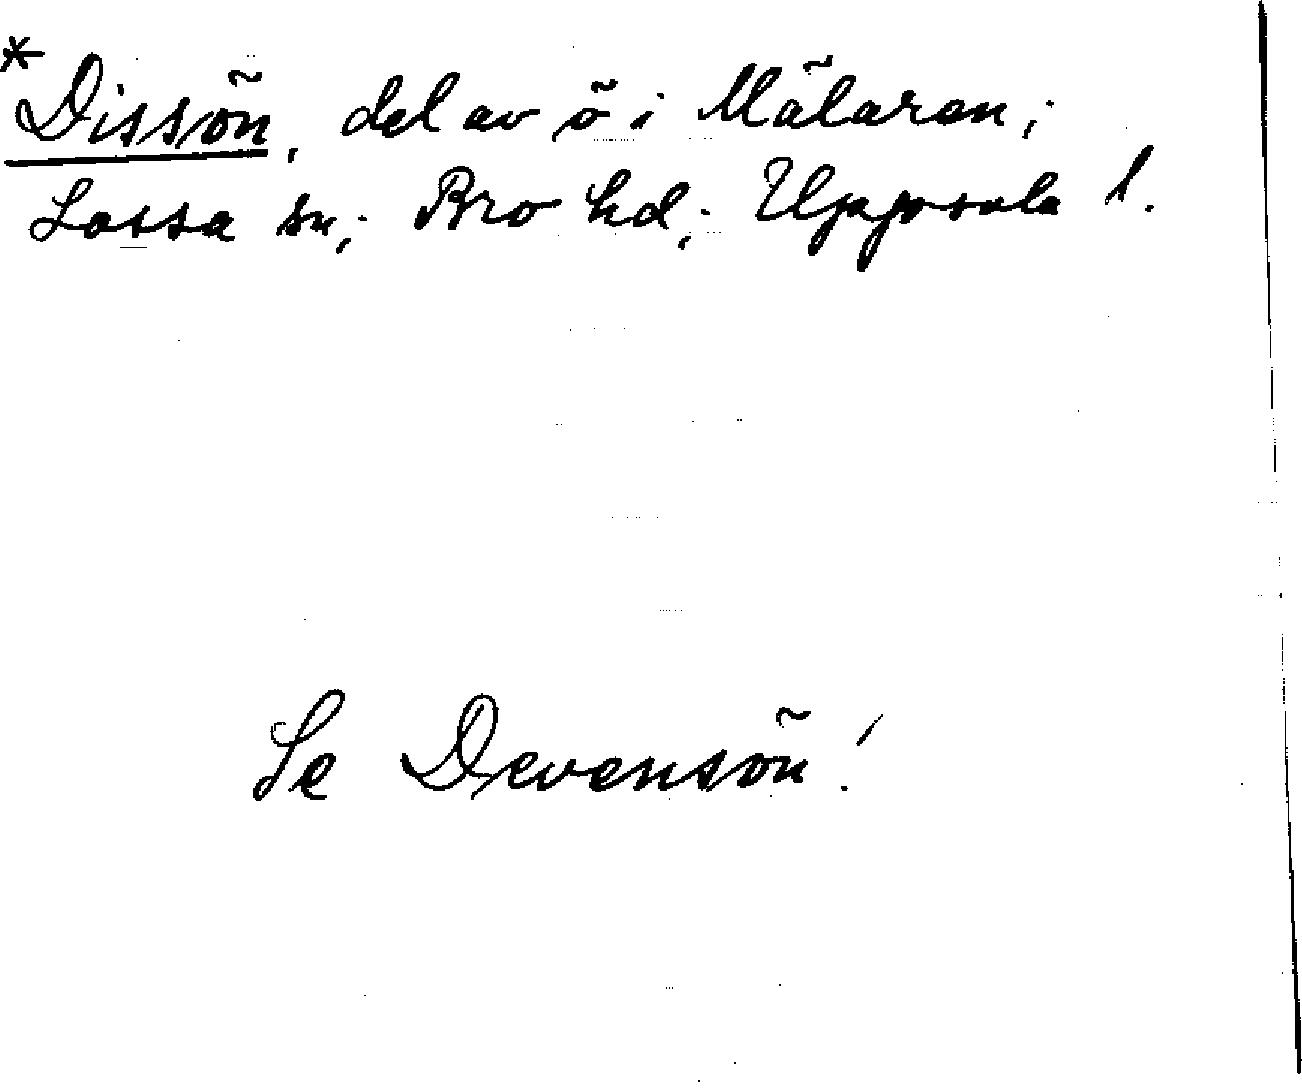 *Dissön, del av ö i Mälaren;
Lossa sn; Bro hd; Uppsala l.
Se Devensön!